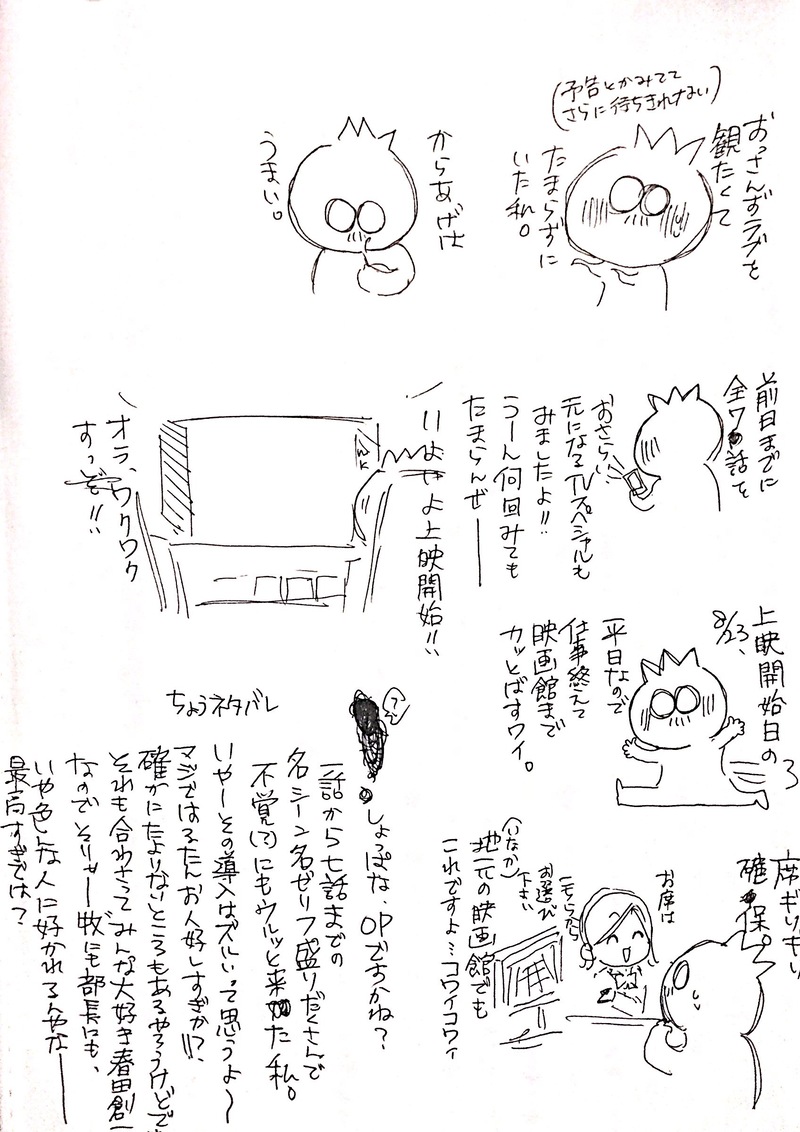 おっさんずラブを
観たくて
たまらずに
いた私。
(予告とかみてて
さらに待ちきれない)
からあげは
うまい。
前日までに
全7話を
おさらい
元になるTVスペシャルも
みましたよ!!
うーん何回みても
たまらんぜ――
いよいよ上映開始!!
オラ、ワクワク
すっぞ!!
上映開始日の
8/23、
平日なので
仕事終えて
映画館まで
カッとばすワイ。
席ギリギリ
確保。
お席は
こちらから
お選び
下さい
(いなか)
地元の映画館でも
これですよ…コワイコワイ
ちょうネタバレ
?
しょっぱな、OPですかね?
一話から七話までの
名シーン名ゼリフ盛りだくさんで
不覚(?)にもウルッと来た私。
いやーその導入はズルいって思うよ～
マジではるたんお人好しすぎか!?
確かにたよりないところもあるやろうけどで
それも合わさってみんな大好き春田創一
なのでそりゃー牧にも部長にも、
いや色んな人に好かれるんやな――
最高すぎでは?